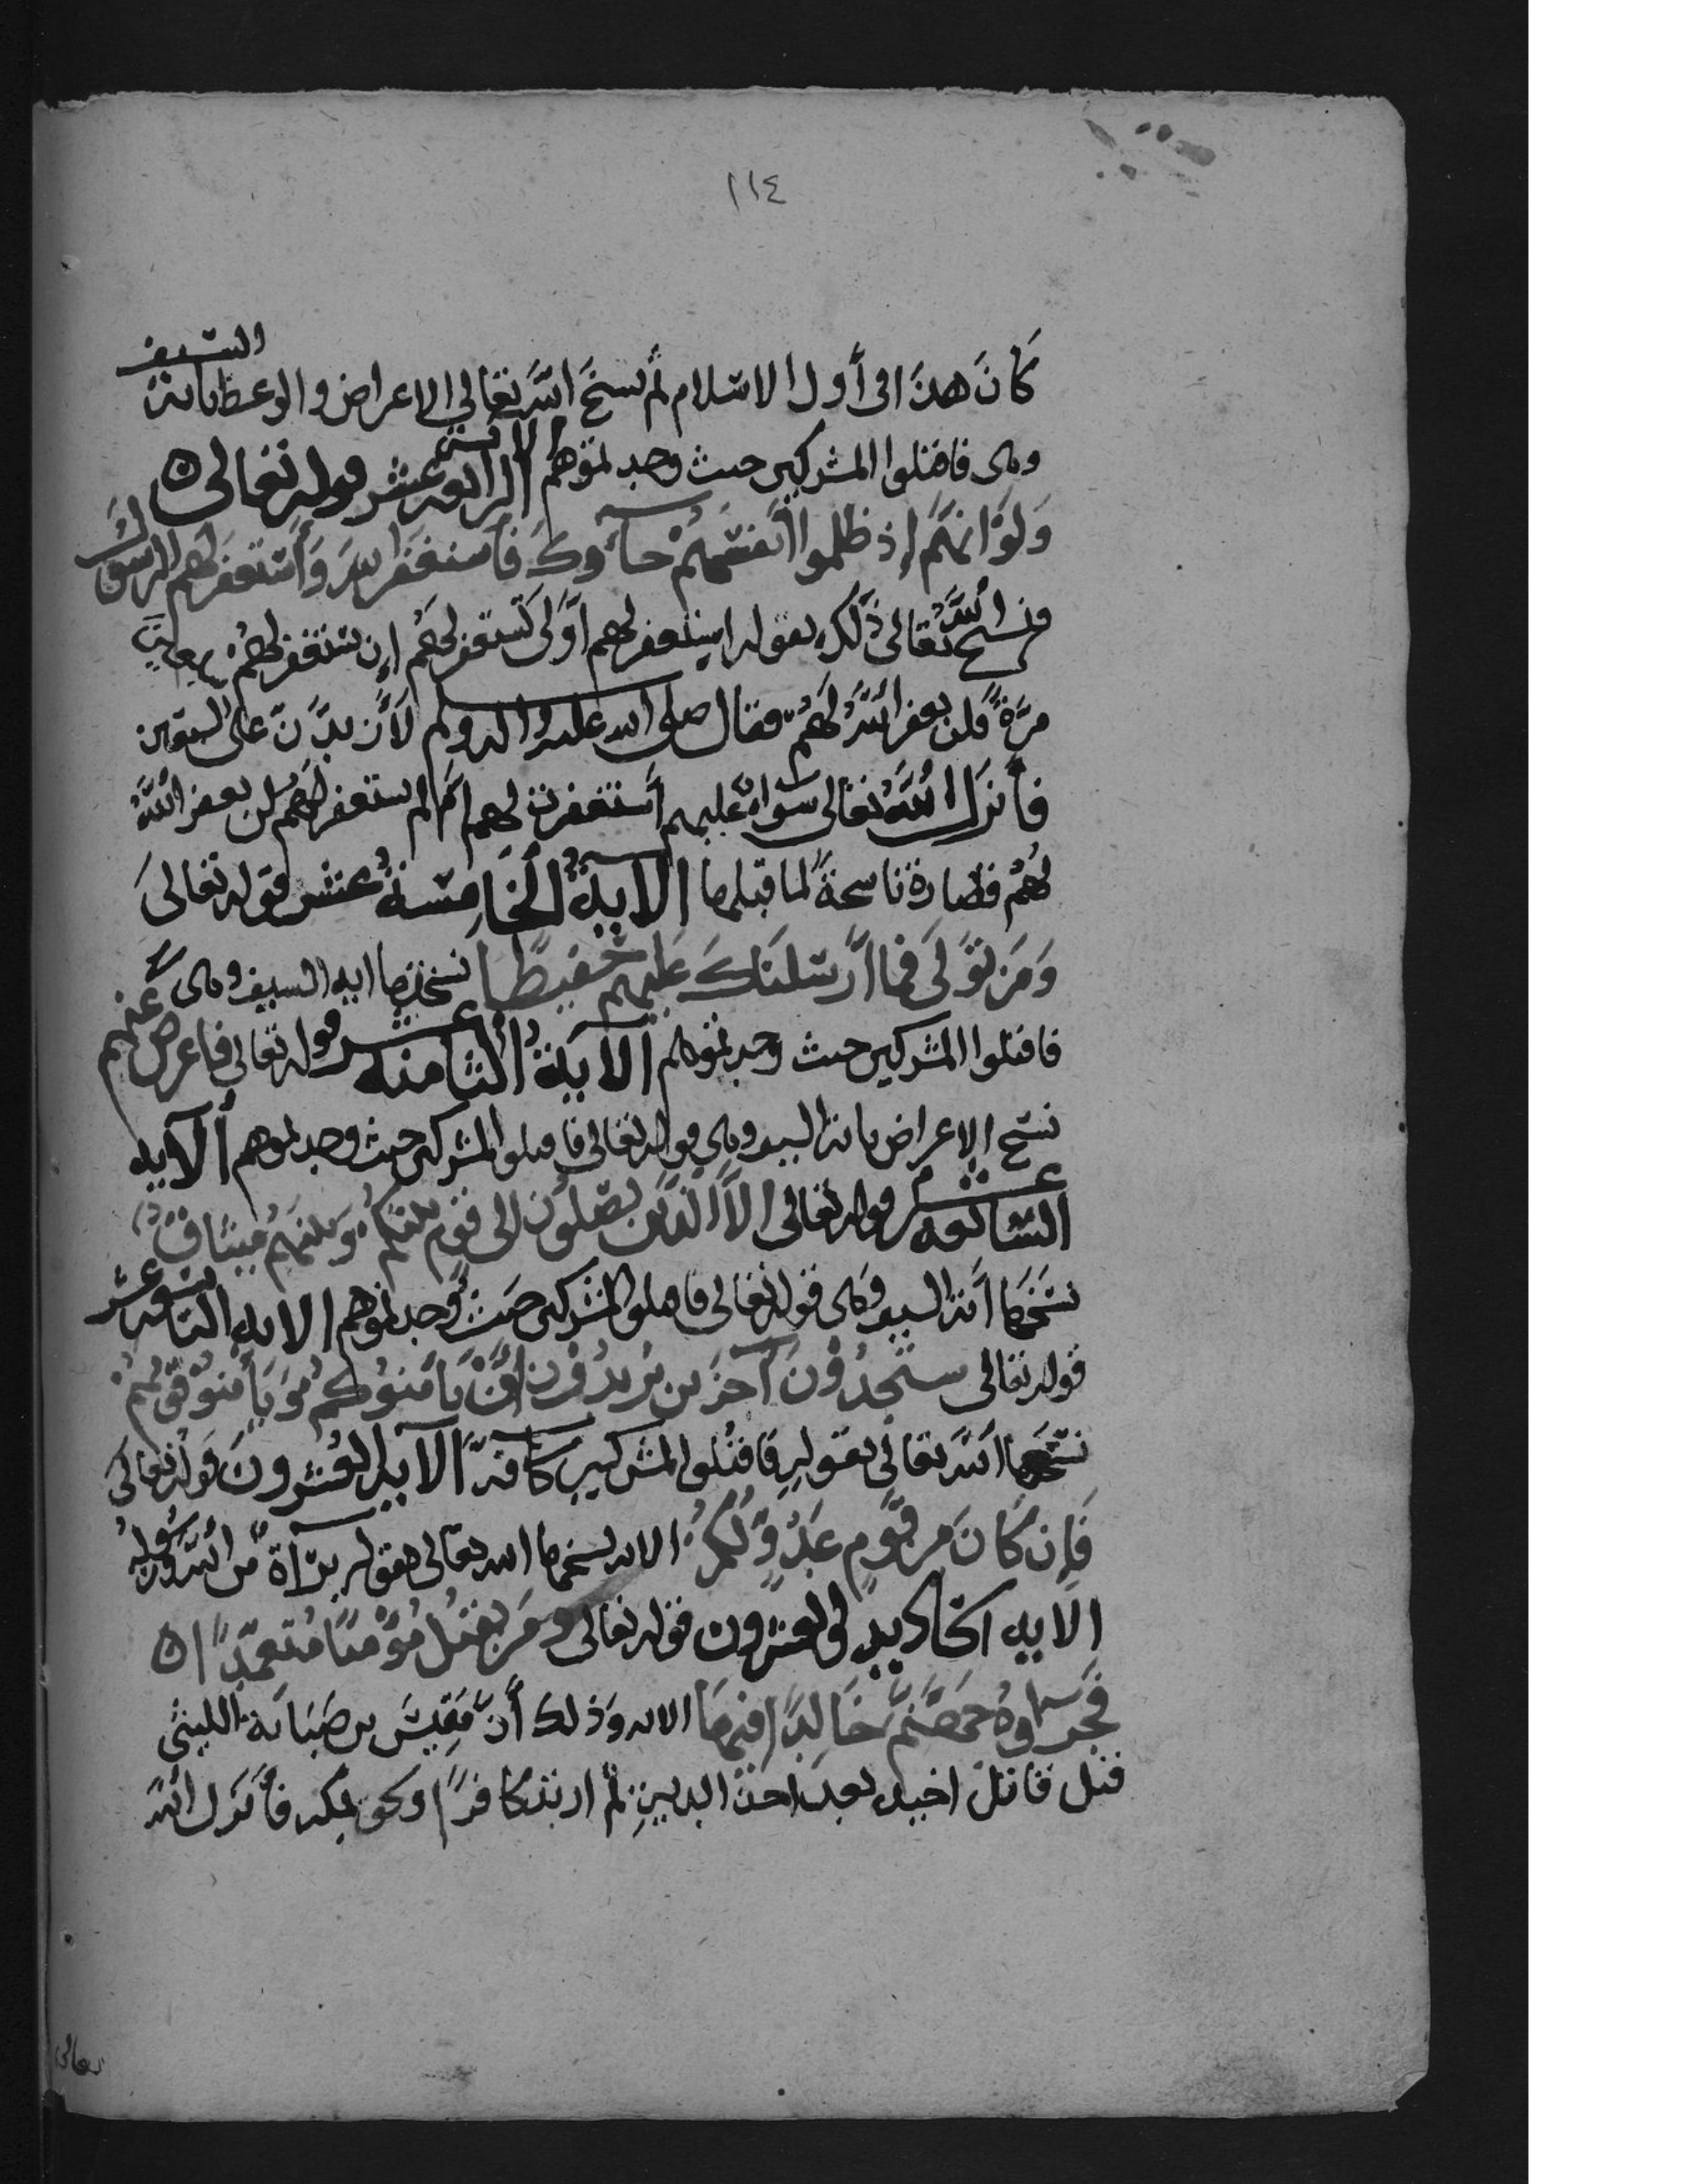 ١١٤
كَانَ هذَا فى أَول الاسلام ثم نسخَ اللهَ تعَالي الاعراض والوعظ باية السيف
وهى فاقتلوا المشركين حيث وجدتموهم الاية الرابعه عشر قوله تعالى
وَلَوْ انهَمُ إذ ظلموا اَنفسَهُمْ جآوكَ فَاستغفرَ الله وَأستغفرَ لهَم الرسُولُ
فنسخ اللهُ تعَالى ذَلك بقوله استغفر لهم اَوْ لَا تستغفر لهُمْ إن تستغفر لهُمْ سبعين
مرَّةً فلن يغفر اللهَُ لهَُمْ فقال صلى الله عليه واله وسلم لَأزيدَنَّ على السبعين
فأنزل اللهُ تعالى سَواءٌ عليهم أستغفرت لهم اَمْ لم تستغفر لهَُمْ لن يغفر اللهُ
لهُمْ فصارة ناسخةً لما قبلها الآيةُ الخَامِسَةُ عشر قوله تعالىَ
وَمَن تَوَلىَ فما اَرسَلنَكَ عَليهم حَفيظًا نسختها ايه السيف وهى
فاقتلوا المشركين حيث وجدتموهم الآيَةُ الثامنه عشر قوله تعالي فاعرض عَنهم
نسَخ الاعراض باية السيف وهى قوله تعَالي فاقتلوا المشركين حيث وجدتموهم ألآيه
السَّابعه عشر قوله تعَالى الاَّ الَّذين يَصِلُونَ الى قَوْم بَينكُمْ وَبَينهَمُ ميثاقٌ
نسَخَهَا اَية السيف وَهى قوله تعَالي فاقتلوا المشركين حيَثُ وَجدتموهم الايه التاسعه عشر
قوله تعالى ستجِدُوْنَ آخرَين يُريْدُوْنَ اَنْ يَامَنُوكُمْ وَيَأمَنُوْ قَوْمَهُمْ
نسَخهَا اللهَ تعَالَى بقَولهِ فَاقتُلُوا المشركين كَآفةً الآيه العُشرونَ قَوله تعَالىَ
فَإن كَانَ مِن قَومٍ عَدُوٍّ لكُمُ الايه نسخها الله تعَالى بقوله بَرآءةٌ من اللهَِ وَرَسُولِهِ
الايه الحَاديه والعشرون قوله تعَالى ومَن يَقتُل مُؤْمنًا مُتَعَمّدًا
فَجَزآؤهُ جَهَنَّمُ خَالِدًا فيهَا الايه وَذلك أَنَّ مَقِيسَ بن صَبَابَة الليثى
قتل قاتل اخيه بعد اخذ الديةِ ثم ارتد كافرًا ولحق بمكه فأنزل اللهَُ
تعالى